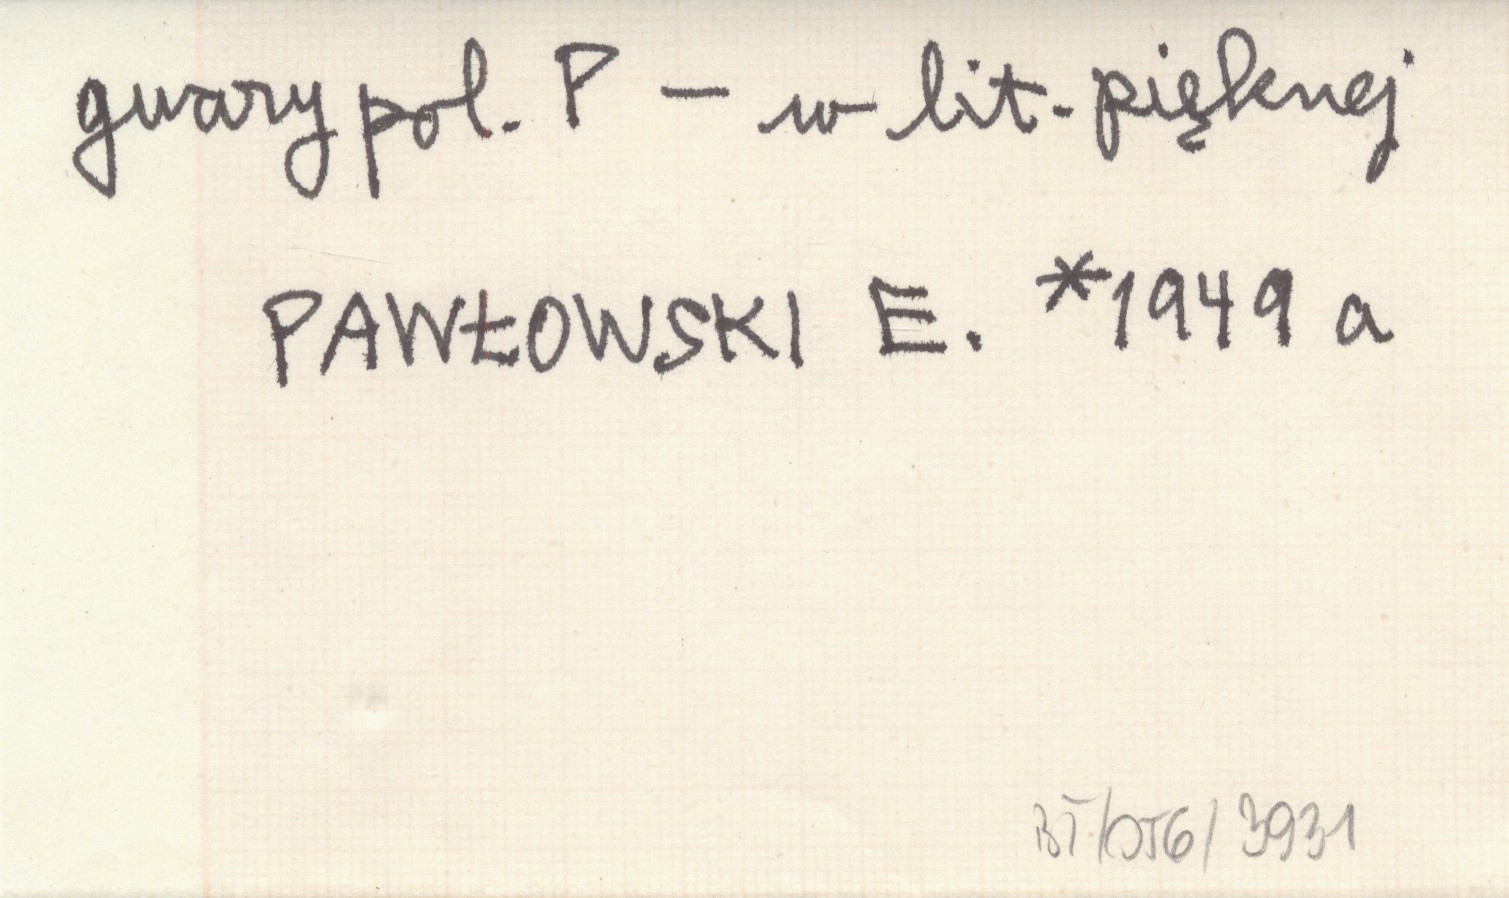 gwary pol. P – w lit. pięknej
PAWŁOWSKI E. *1949 a
BT/OJG/3931